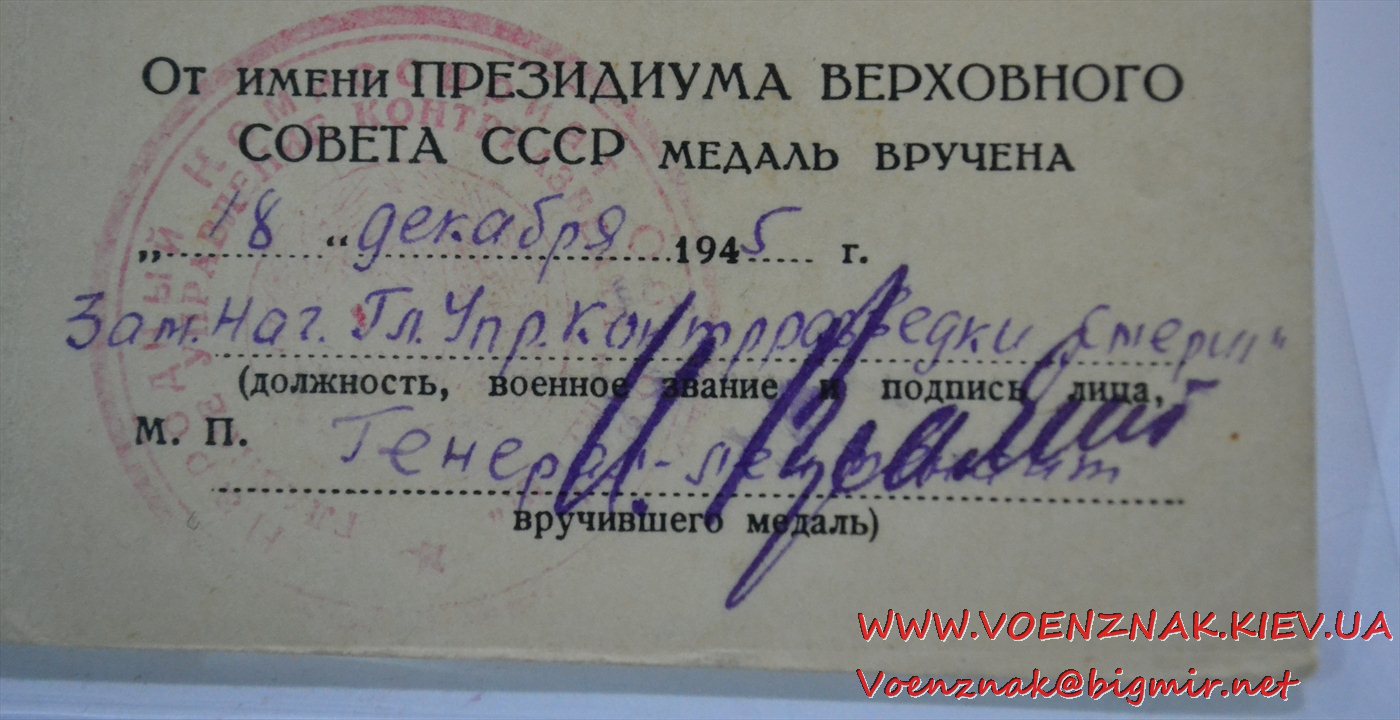 От имени ПРЕЗИДИУМА ВЕРХОВНОГО
СОВЕТА СССР МЕДАЛЬ ВРУЧЕНА
„18“ декабря 1945 г.
Зам. Нач. Гл. Упр. Контрразведки „Смерш“
(должность, военное звание и подпись лица,
М. П. Генерал-лейтенант
вручившего медаль)
НАРОДНЫЙ КОМИССАРИАТ
ГЛАВНОЕ УПРАВЛЕНИЕ КОНТРРАЗВЕДКИ
WWW.VOENZNAK.KIEV.UA
Voenznak@bigmir.net